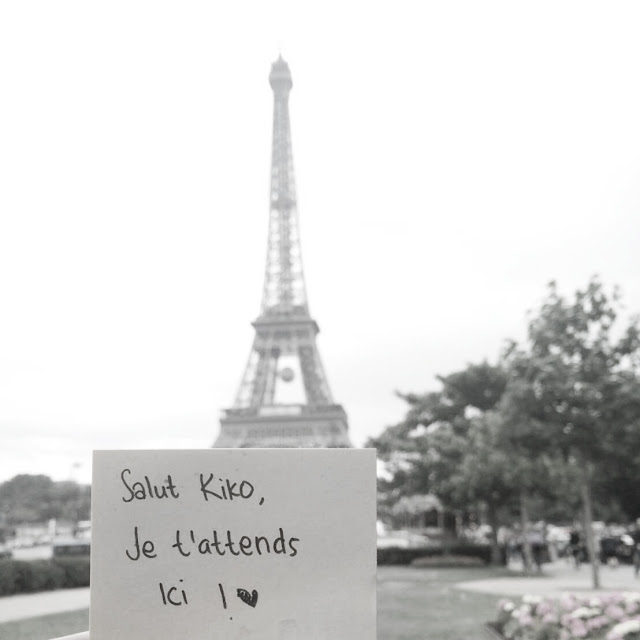 Salut Kiko,
Je t'attends
Ici ! ♥